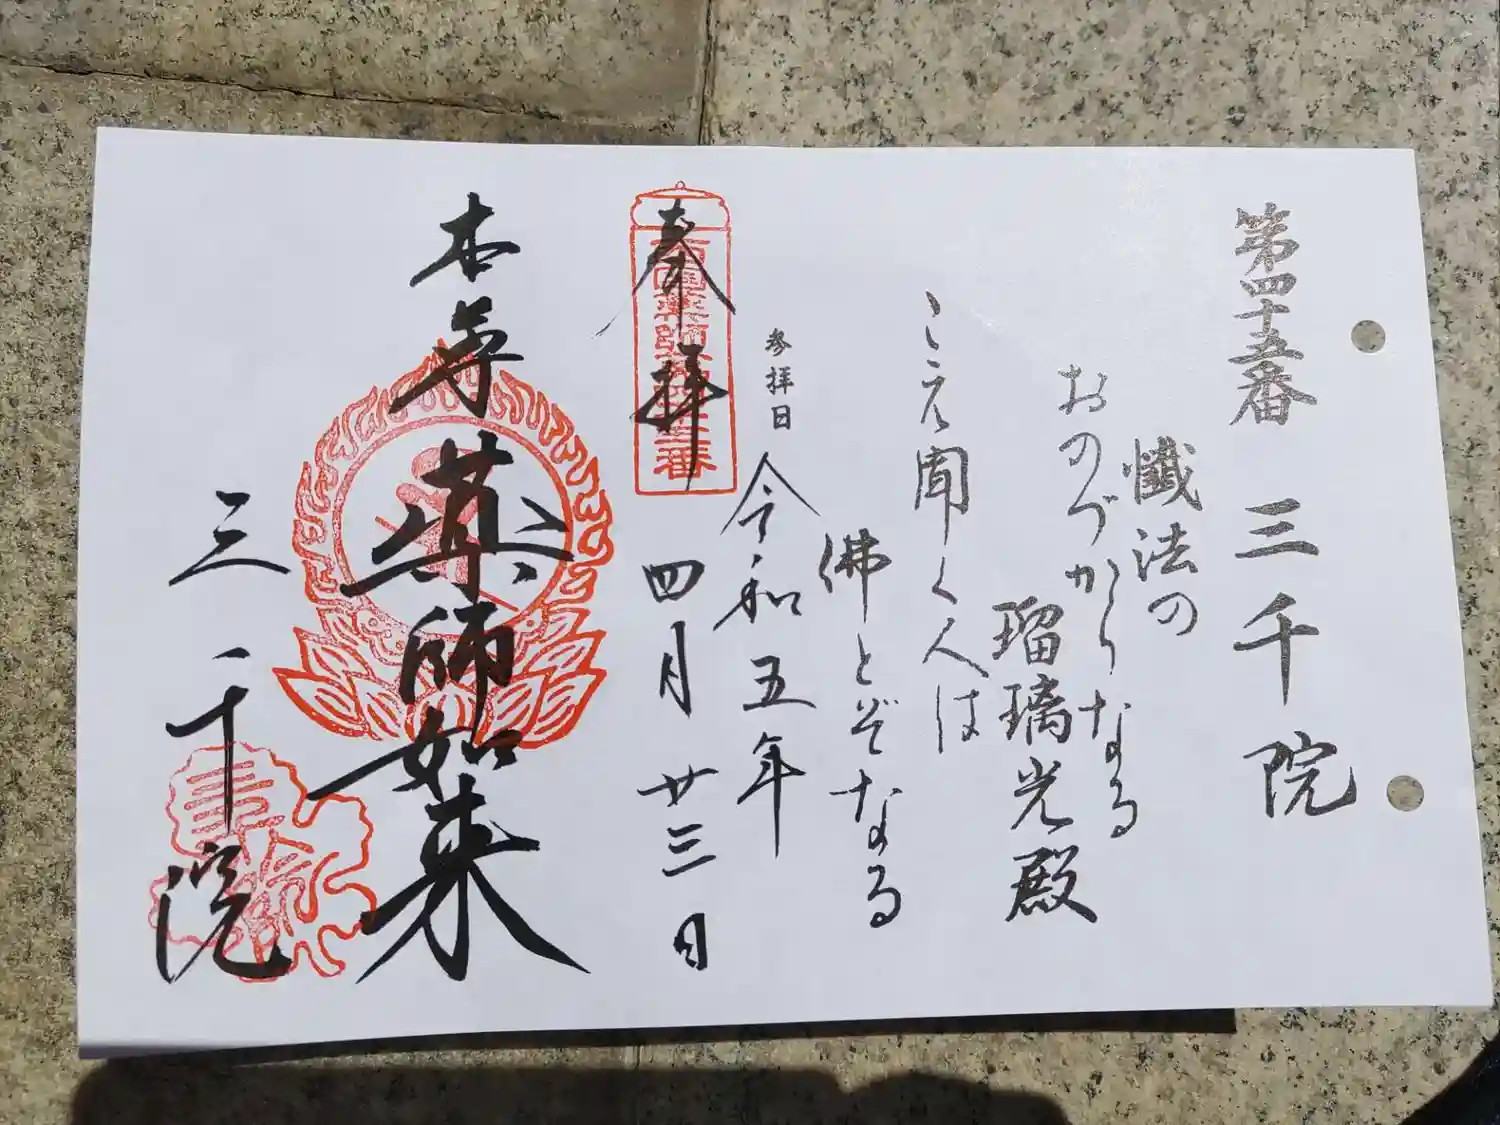 第四十五番 三千院
懺法の
おのづからなる
瑠璃光殿
こえ聞く人は
佛とぞなる
参拝日
令和五年
四月廿三日
奉拝
西国薬師第四十五番
本尊 薬師如来
三千院